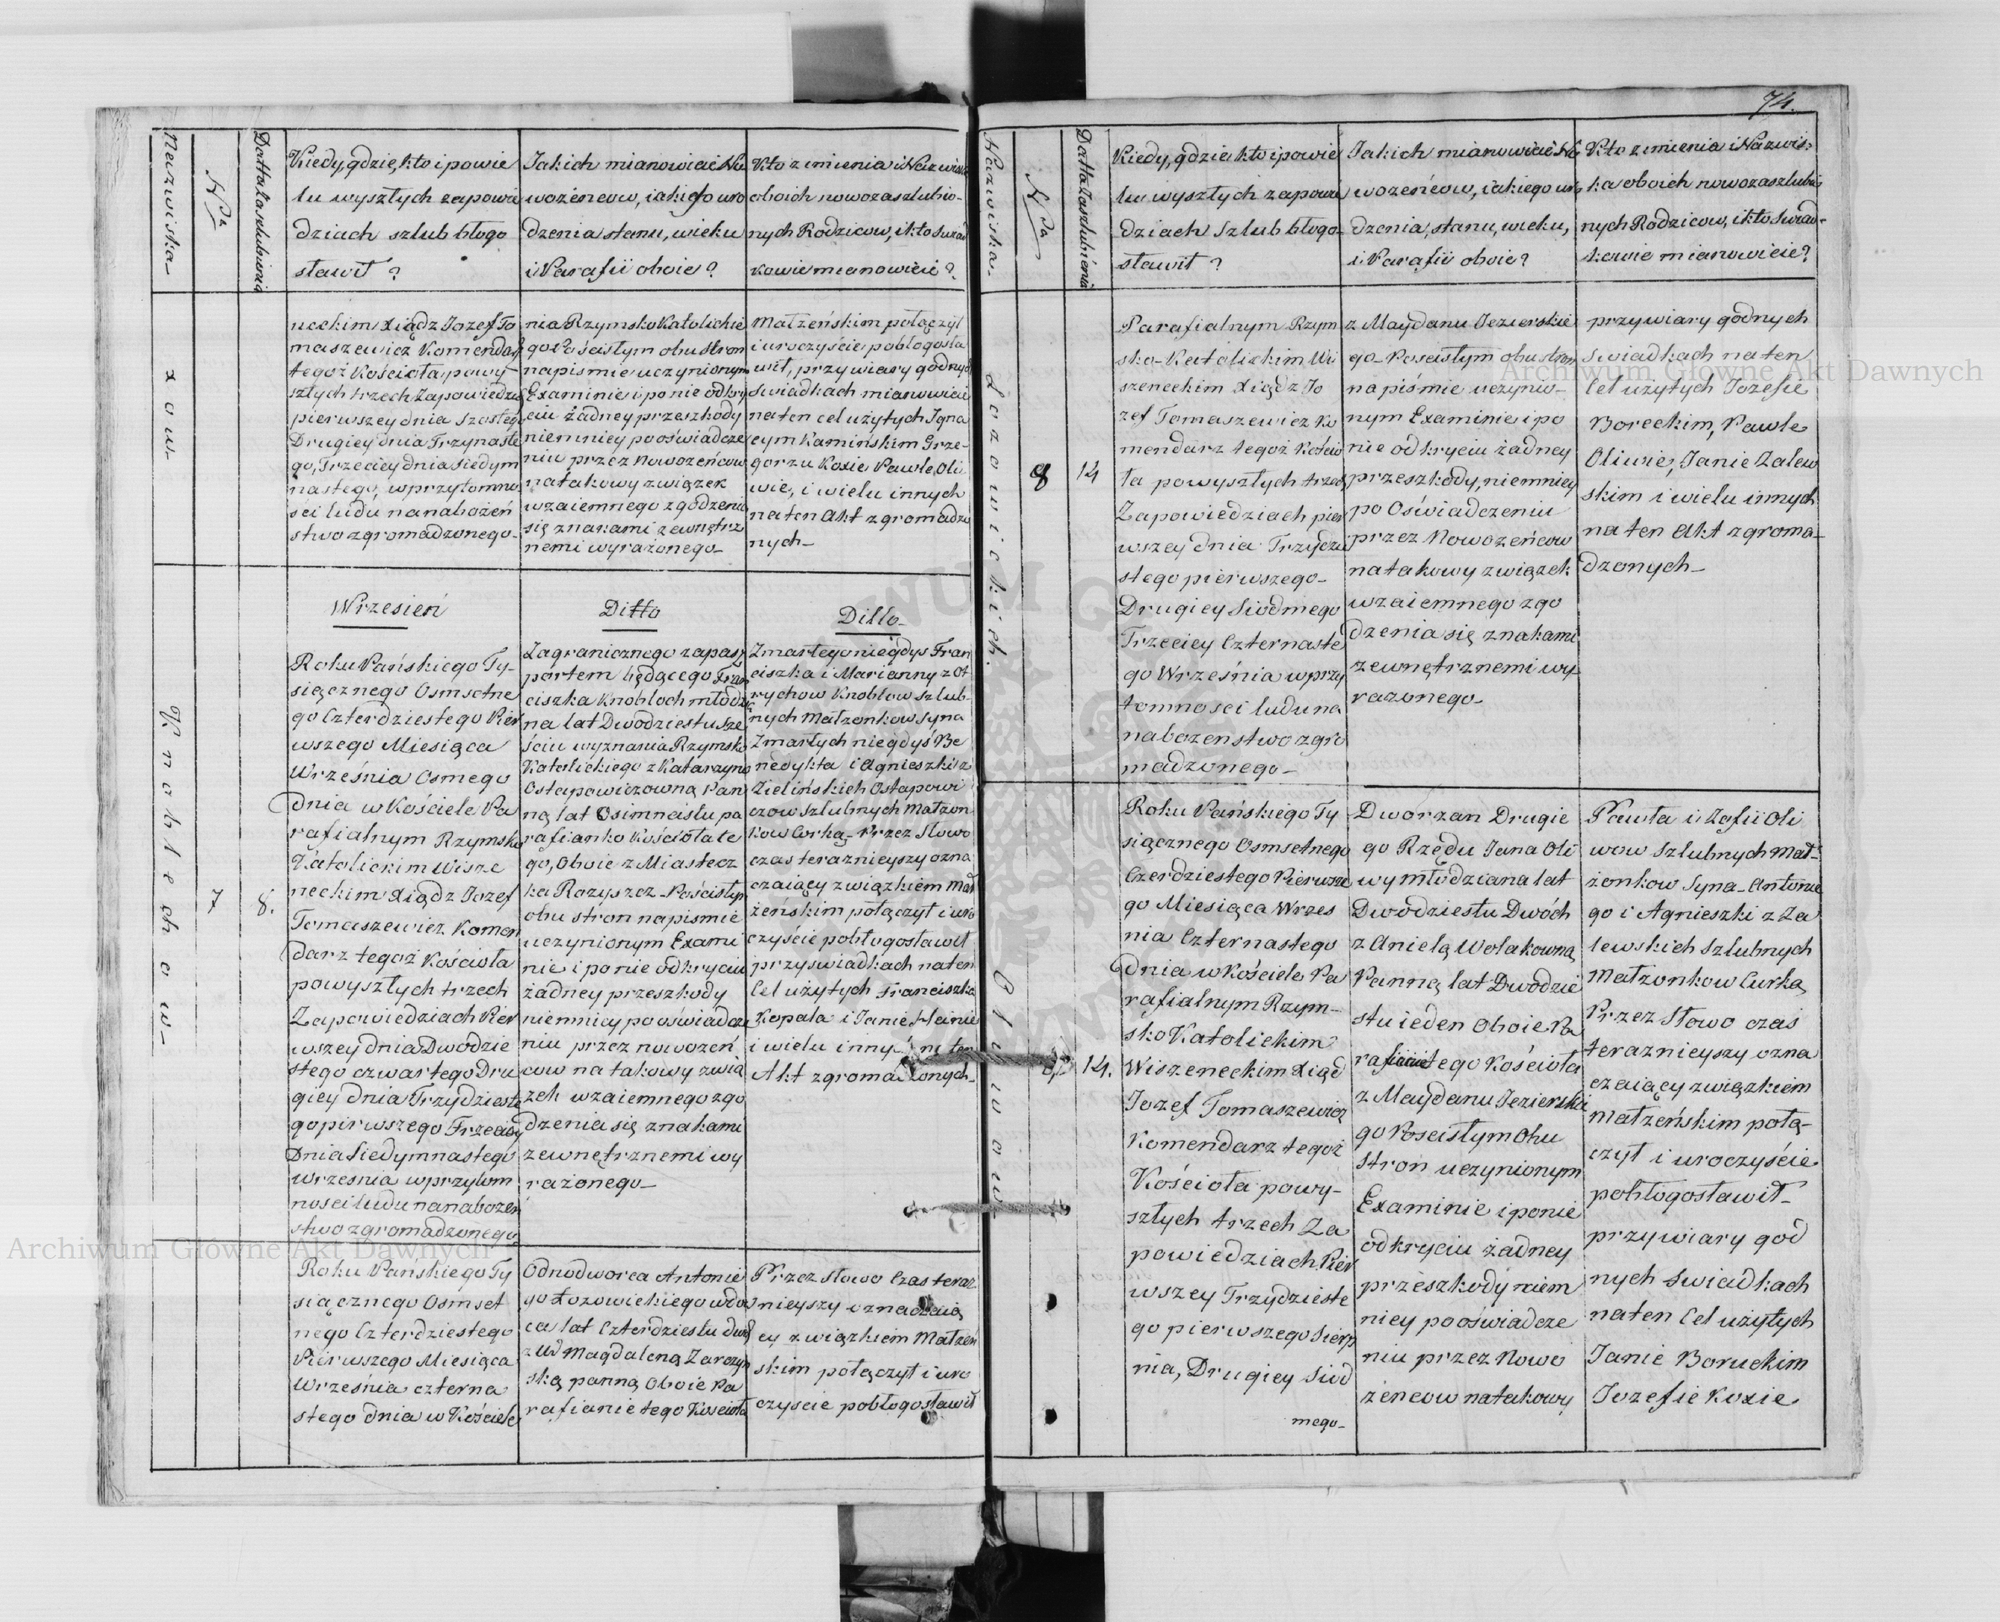 74.
Nazwiska
Nra
Datta Zaszlubienia
Kiedy, gdzie, kto i powie
lu wyszłych zapowie
dziach szlub błogo
sławił ?
Jakich mianowicie No
wożencow, iakiego uro
dzenia stanu, wieku
i Parafii oboie ?
Kto z imienia i Nazwiska
oboich nowozaszlubio-
nych Rodzicow, i kto swiad
kowie mianowicie ?
xow-
neckim Xiądz Jozef To
maszewicz Komendarz
tegoż Kościoła, powy-
szłych trzech Zapowiedziach
pierwszey dnia Szostego
Drugiey dnia Trzynaste
go, Trzeciey dnia Siedym
nastego, w przytomno
sci ludu na nabożeń
stwo zgromadzonego-
nia Rzymsko Katolickie
go Pościsłym obu stron
na pismie uczynionym
Examinie i po nie odkry
ciu żadney przeszkody
niemniey po oświadcze
niu przez Nowożeńcow
na takowy związek
wzaiemnego zgodzenia
się znakami zewnętrz
nemi wyrażonego-
Małżeńskim połączył
i uroczyście pobłogosła
wił, przy wiary godnych
Swiadkach mianowicie
na ten cel użytych Igna
cym Kamińskim Grze-
gorzu Koxie Pawle Oli
wie, i wielu innych
na ten Akt zgromadzo
nych-
Wrzesień
Ditto
Ditto-
Knoblochow-
7
8.
Roku Pańskiego Ty-
siącznego Osmsetne
go Czterdziestego Pier
wszego Miesiąca
Września Osmego
dnia w Kościele Pa
rafialnym Rzymsko
Katolickim Wisze
neckim Xiądz Jozef
Tomaszewicz Komen
darz tegoż Kościoła
powyszłych trzech
Zapowiedziach Pier
wszey dnia Dwodzie
stego czwartego Dru
giey dnia Trzydzieste
go pirwszego Trzeciey
Dnia Siedymnastego
Wrzesnia w przytom
nosci ludu na nabożeń
stwo zgromadzonego
Zagranicznego za pasz
portem będącego Fran
ciszka Knobloch młodzie
na lat Dwodziestu sze
ściu wyznania Rzymsko
Katolickiego z Katarzyną
Ostapowiczowną Pan
ną lat Osimnastu pa
rafianko Kościoła te
go, Oboie z Miastecz
ka Rożyszcz- Pościsłym
obu stron na pismie
uczynionym Exami
nie i po nie odkryciu
żadney przeszkody
niemniey po oświadcze
niu przez nowożeń
cow na takowy zwią
zek wzaiemnego zgo
dzenia się znakami
zewnętrznemi wy
rażonego-
Zmarłego niegdys Fran
ciszka i Marianny z Ot
rychow Knoblow szlub-
nych Małżonkow Syna
Zmarłych niegdyś Be
nedykta i Agnieszki z
Zielińskich Ostapowi
czow Szlubnych Małżon
kow Corką- Przez Słowo
czas teraznieyszy ozna
czaiący związkiem Mał
żeńskim połączył i uro
czyście pobłogosławił
przy swiadkach na ten
Cel użytych Franciszka
Kopala i Janie Heinie
i wielu innych na ten
Akt zgromadzonych-
Roku Pańskiego Ty
siącznego Osmset
nego Czterdziestego
Pierwszego Miesiąca
Września czterna
stego dnia w Kościele
Odnodworca Antonie
go Łozowickiego wdow
ca lat Czterdziestu dwoch
z Ud Magdaleną Zarczyn
ską panną Oboie Pa
rafianie tego Kościoła
Przez Słowo Czas teraz
nieyszy oznaczaią
cy związkiem Małżen
skim połączył i uro
czyście pobłogosławił
Nazwiska-
Nra
Datta Zaszlubienia
Kiedy, gdzie kto i powie
lu wyszłych zapowie
dziach Szlub błogo-
sławił ?
Jakich mianowicie No
wożeńcow, iakiego uro
dzenia, stanu, wieku,
i Parafii oboie ?
Kto z imienia i Nazwis-
ka oboich nowozaszlubio
nych Rodzicow, i kto Swiad-
kowie mianowicie ?
Łozowickich.
8
14
Parafialnym Rzym
sko-Katolickim Wi
szeneckim Xiądz Jo
zef Tomaszewicz Ko
mendarz tegoż Kościo
ła powyszłych trzech
Zapowiedziach pier
wszey dnia Trzydzie
stego pierwszego-
Drugiey Siodmego
Trzeciey Czternaste
go Września w przy
tomnosci ludu na
nabozenstwo zgro
madzonego-
z Maydanu Jezierskie
go- Pościsłym obu stron
na piśmie uczynio-
nym Examinie i po
nie odkryciu żadney
przeszkody, niemniey
po Oświadczeniu
przez Nowożeńcow
na takowy związek
wzaiemnego zgo
dzenia się znakami
zewnętrznemi wy
rażonego-
przy wiary godnych
swiadkach na ten
Cel użytych Jozefie
Boreckim, Pawle
Oliwie, Janie Zalew
skim i wielu innych
na ten Akt zgroma-
dzonych-
Oliwow-
14.
Roku Pańskiego Ty
siącznego Osmsetnego
Czerdziestego Pierwsze
go Miesiąca Wrzes
nia Czternastego
dnia w Kościele Pa
rafialnym Rzym-
sko Katolickim
Wiszeneckim Xiądz
Jozef Tomaszewicz
Komendarz tegoż
Kościoła powy-
szłych trzech Za
powiedziach Pier
wszey Trzydzieste
go pierwszego Sierp
nia, Drugiey Siod
mego-
Dworzan Drugie
go Rzędu Jana Oli
wy młodziana lat
Dwodziestu Dwóch
z Anielą Wolakowną
Panną lat Dwodzie
stu ieden Oboie Pa
rafianie tego Kościoła
z Maydanu Jezierskie
go Pościsłym Obu
stron uczynionym
Examinie i po nie
odkryciu żadney
przeszkody niem
niey po oświadcze
niu przez Nowo
żencow na takowy
Pawła i Zofii Oli
wow Szlubnych Mał-
żonkow Syna- Antonie
go i Agnieszki z Za
lewskich Szlubnych
Małżonkow Curką
Przez Słowo czas
teraznieyszy ozna
czaiący związkiem
Małżeńskim połą-
czył i uroczyście
pobłogosławił-
przy wiary god
nych Swiadkach
na ten Cel użytych
Janie Boruckim
Jozefie Koxie
Archiwum Główne Akt Dawnych
Archiwum Główne Akt Dawnych